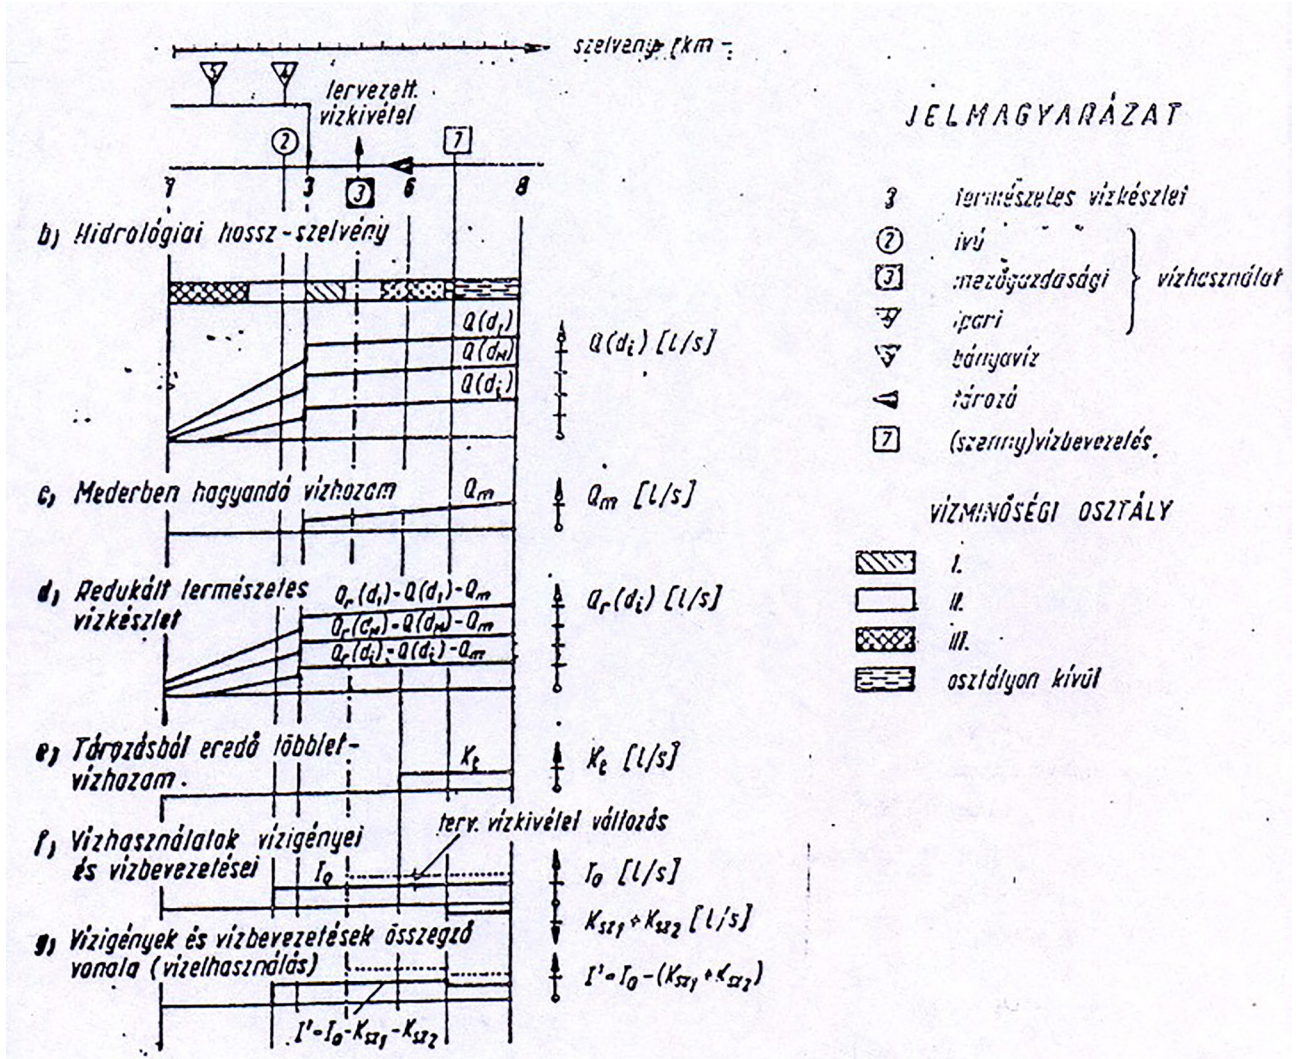 szelvény [km]
5 4
tervezett
vízkivétel
2 7
1 3 3 6 8
b) Hidrológiai hossz-szelvény
Q(d₁)
Q(d_M)
Q(d_i)
Q(d_i) [l/s]
c) Mederben hagyandó vízhozam
Q_m
Q_m [l/s]
d) Redukált természetes
vízkészlet
Q_r(d₁)=Q(d₁)-Q_m
Q_r(d_M)=Q(d_M)-Q_m
Q_r(d_i)=Q(d_i)-Q_m
Q_r(d_i) [l/s]
e) Tározásból eredő többlet-
vízhozam.
K_t
K_t [l/s]
terv. vízkivétel változás
f) Vízhasználatok vízigényei
és vízbevezetései
I_o
I_o [l/s]
K_sz₁ + K_sz₂ [l/s]
g) Vízigények és vízbevezetések összegző
vonala (vízelhasználás)
I'=I_o-(K_sz₁+K_sz₂)
I'=I_o-K_sz₁-K_sz₂
JELMAGYARÁZAT
3 természetes vízkészlet
2 ivó
3 mezőgazdasági
vízhasználat
4 ipari
5 bányavíz
tározó
7 (szenny)vízbevezetés
VÍZMINŐSÉGI OSZTÁLY
I.
II.
III.
osztályon kívül